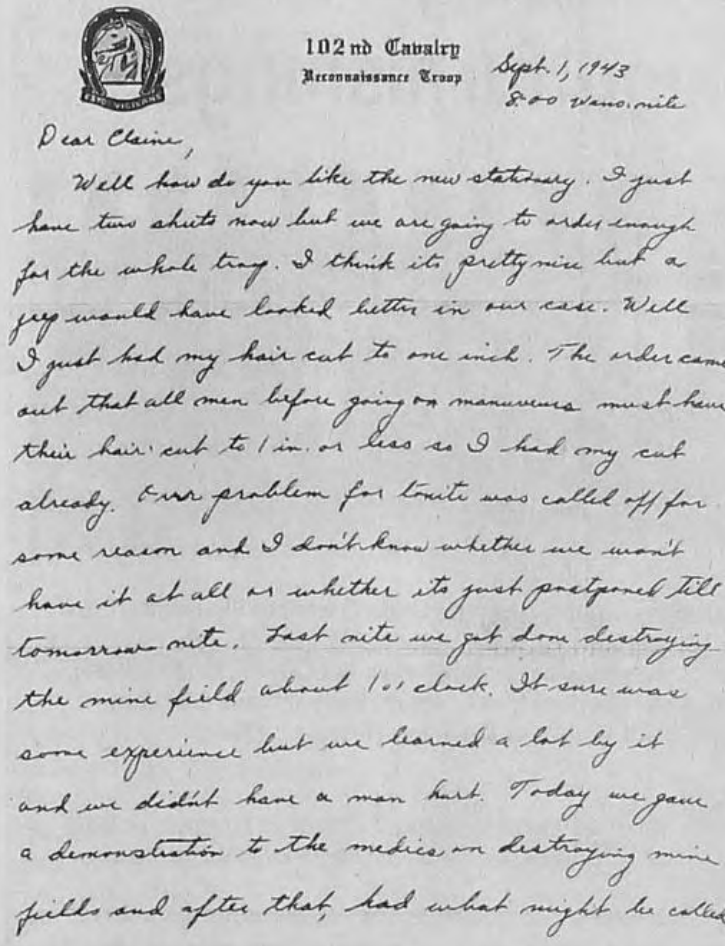 102nd Cavalry
Reconnaissance Troop
Sept. 1, 1943
8:00 nite
Dear Claine,
Well how do you like the new stationary. I just
have two sheets now but we are going to order enough
for the whole troop. I think its pretty nice but a
jeep would have looked better in our case. Well
I just had my hair cut to one inch. The order came
out that all men before going on manuveurs must have
their hair cut to 1 in. or less so I had my cut
already. Our problem for tonite was called off for
some reason and I don't know whether we won't
have it at all or whether its just postponed till
tomorrow nite. Last nite we got done destroying
the mine field about 1 o'clock. It sure was
some experience but we learned a lot by it
and we didn't have a man hurt. Today we gave
a demonstration to the medics on destroying mine
fields and after that, had what might be called